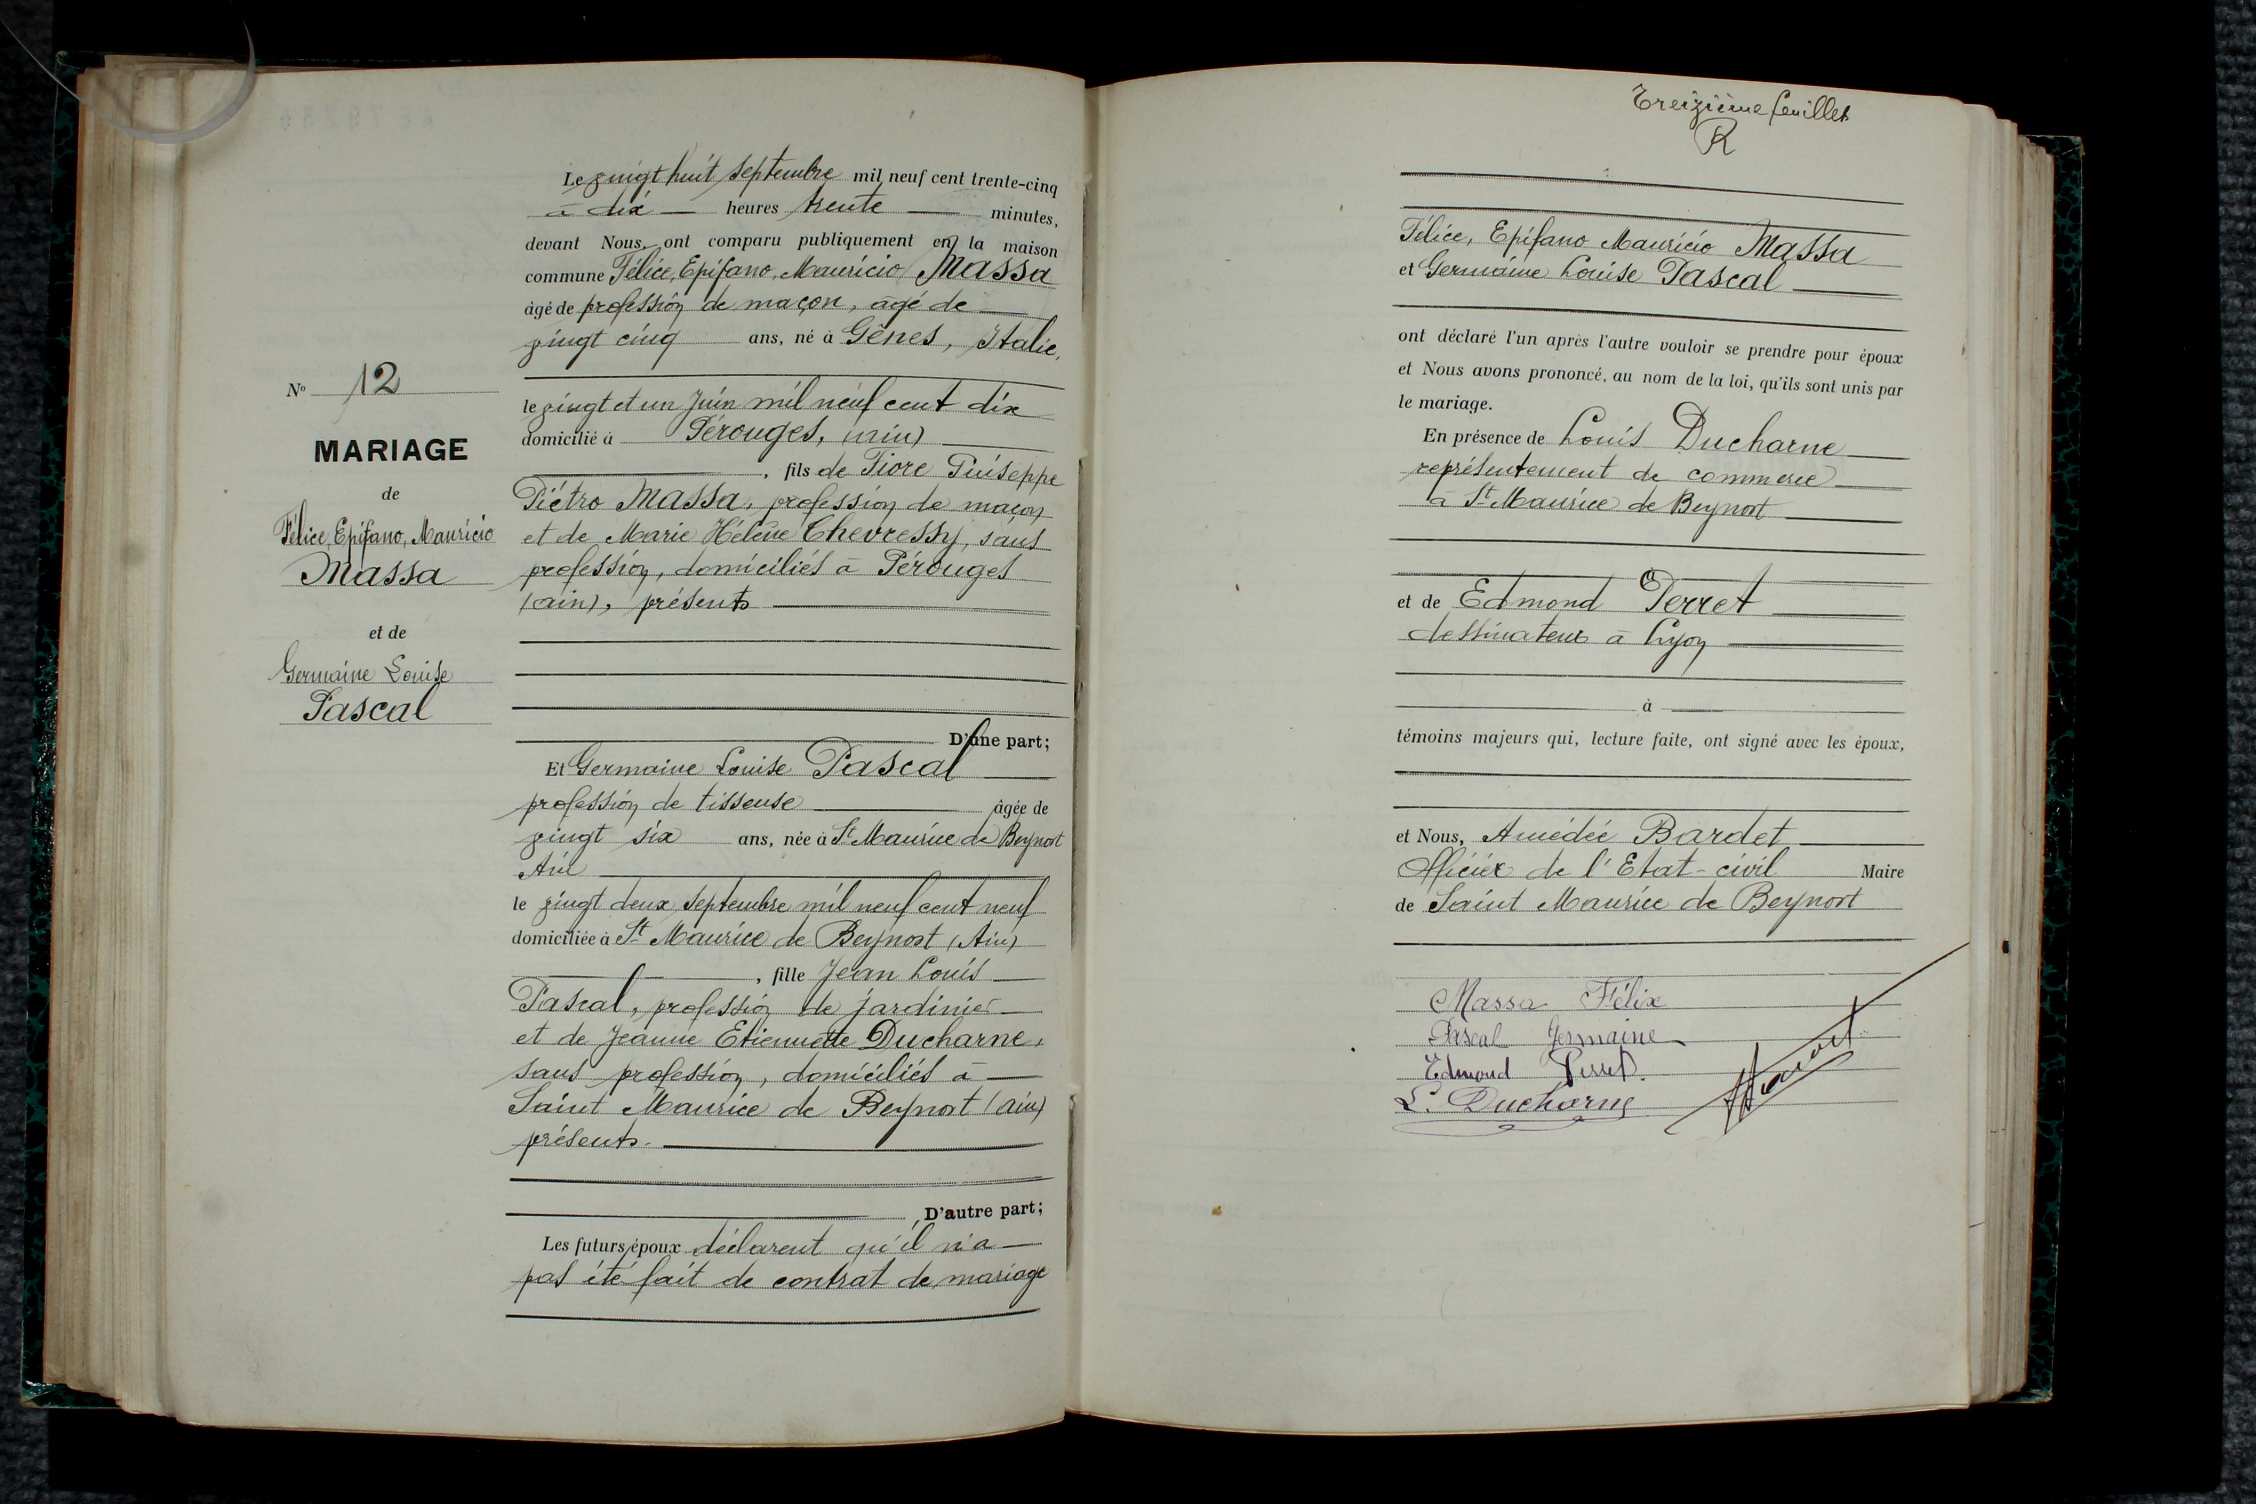 Le vingt huit septembre mil neuf cent trente-cinq
à dix heures trente minutes,
devant Nous, ont comparu publiquement en la maison
commune Félice, Epifano, Mauricio Massa
âgé de profession de maçon, âgé de
vingt cinq ans, né à Gênes, Italie,
le vingt et un Juin mil neuf cent dix
domicilié à Pérouges, (ain)
, fils de Fiore Guiseppe
Piétro Massa, profession de maçon
et de Marie Hélène Chevressy, sans
profession, domiciliés à Pérouges
(ain), présents
D'une part;
Et Germaine Louise Pascal
profession de tisseuse âgée de
vingt six ans, née à St Maurice de Beynost
Ain
le vingt deux septembre mil neuf cent neuf
domiciliée à St Maurice de Beynost (Ain)
, fille Jean Louis
Pascal, profession de jardinier
et de Jeanne Etiennette Ducharne,
sans profession, domiciliés à
Saint Maurice de Beynost (ain)
présents.
D'autre part;
Les futurs époux déclarent qu'il n'a
pas été fait de contrat de mariage
No 12
MARIAGE
de
Félice, Epifano, Mauricio
Massa
et de
Germaine Louise
Pascal
Treizième feuillet
R
Félice, Epifano Mauricio Massa
et Germaine Louise Pascal
ont déclaré l'un après l'autre vouloir se prendre pour époux
et Nous avons prononcé, au nom de la loi, qu'ils sont unis par
le mariage.
En présence de Louis Ducharne
représentement de commerce
à St Maurice de Beynost
et de Edmond Perret
dessinateur à Lyon
à
témoins majeurs qui, lecture faite, ont signé avec les époux,
et Nous, Amédée Bardet
Officier de l'Etat-civil Maire
de Saint Maurice de Beynost
Massa Félix
Pascal Germaine
Edmond Perret.
L. Ducharne